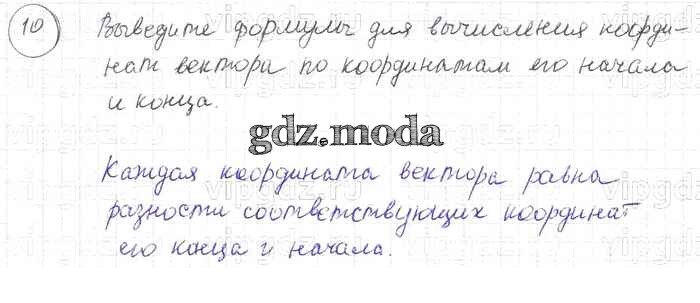 10 Выведите формулы для вычисления коорди-
нат вектора по координатам его начала
и конца.
gdz.moda
Каждая координата вектора равна
разности соответствующих координат
его конца и начала.